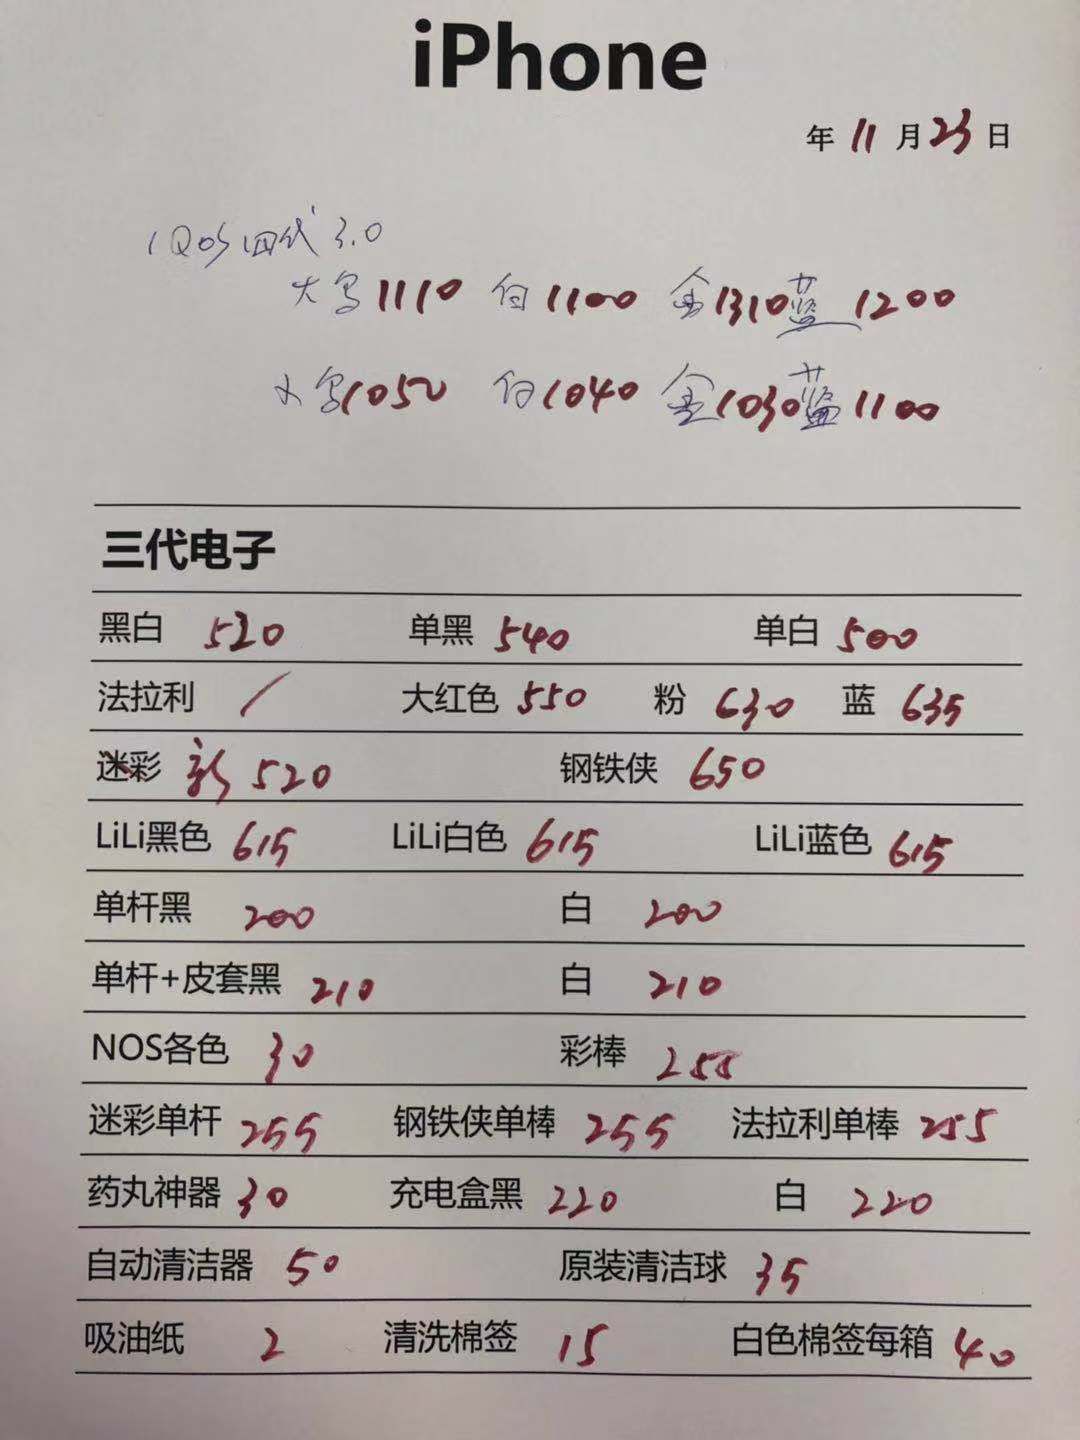 iPhone
年 11 月 23 日
IQOS四代 3.0
大 1110 白 1100 金 1310 蓝 1200
小 1050 白 1040 金 1030 蓝 1100
三代电子
黑白 520 单黑 540 单白 500
法拉利 / 大红色 550 粉 630 蓝 635
迷彩 新 520 钢铁侠 650
LiLi黑色 615 LiLi白色 615 LiLi蓝色 615
单杆黑 200 白 200
单杆+皮套黑 210 白 210
NOS各色 30 彩棒 255
迷彩单杆 255 钢铁侠单棒 255 法拉利单棒 255
药丸神器 30 充电盒黑 220 白 220
自动清洁器 50 原装清洁球 35
吸油纸 2 清洗棉签 15 白色棉签每箱 40